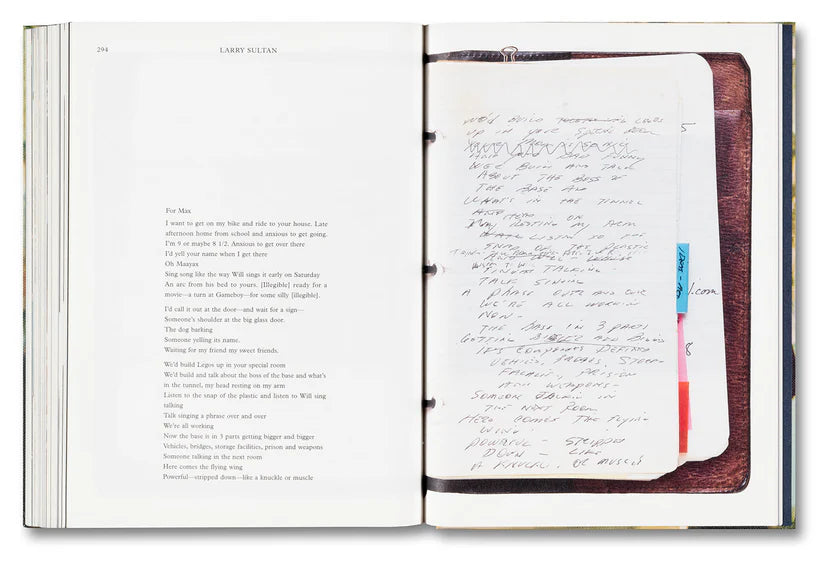 294
LARRY SULTAN
For Max
I want to get on my bike and ride to your house. Late
afternoon home from school and anxious to get going.
I'm 9 or maybe 8 1/2. Anxious to get over there
I'd yell your name when I get there
Oh Maayas
Sing song like the way Will sings it early on Saturday
An arc from his bed to yours. [Illegible] ready for a
movie—a turn at Gameboy—for some silly [illegible].
I'd call it out at the door—and wait for a sign—
Someone's shoulder at the big glass door.
The dog barking
Someone yelling its name.
Waiting for my friend my sweet friends.
We'd build Legos up in your special room
We'd build and talk about the boss of the base and what's
in the tunnel, my head resting on my arm
Listen to the snap of the plastic and listen to Will sing
talking
Talk singing a phrase over and over
We're all working
Now the base is in 3 parts getting bigger and bigger
Vehicles, bridges, storage facilities, prison and weapons
Someone talking in the next room
Here comes the flying wing
Powerful—stripped down—like a knuckle or muscle
WE'D BUILD LEGOS
UP IN YOUR SPECIAL ROOM
WE'D BUILD AND TALK
ABOUT THE BOSS OF
THE BASE AND
WHAT'S IN THE TUNNEL
RESTING MY HEAD
ON
LISTEN TO THE
SNAP OF THE PLASTIC
TALKING -
TALK SINGING
A PHRASE OVER AND OVER
WE'RE ALL WORKIN
NOW -
THE BASE IN 3 PARTS
GETTING BIGGER AND BIGGER
VEHICLS, BRIDGES, STORAGE
PRISON
AND WEAPONS -
SOMEONE TALKIN IN
THE NEXT ROOM
HERE COMES THE FLYING
WING
POWERFUL - STRIPPED
DOWN - LIKE
A KNUCKL OR MUSCLE
5
1.com
8